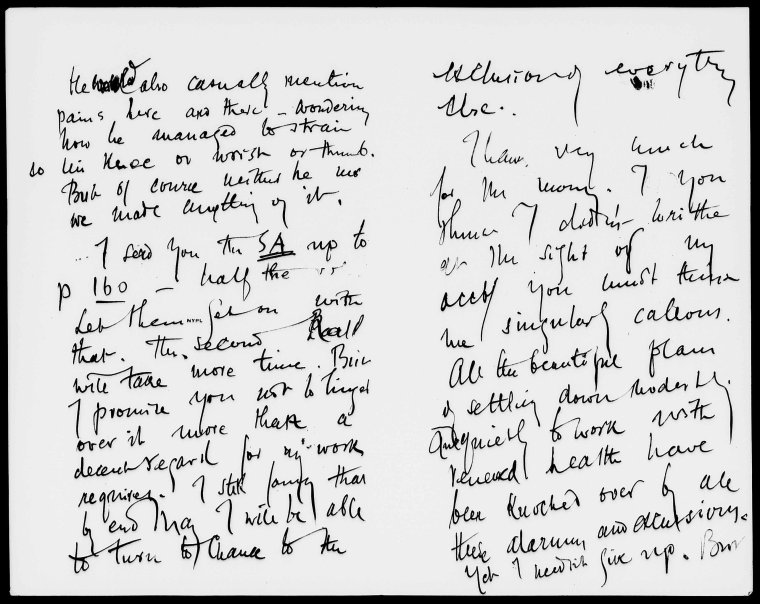 He would also casually mention
pains here and there – wondering
how he managed to strain
so his knee or wrist or thumb.
But of course neither he nor
we made anything of it.
... I send you the SA up to
p 160 – half the
Let them get on with
that. The second half
will take more time. But
I promise you not to linger
over it more than a
decent regard for my work
requires. I still fancy that
by end May I will be able
to turn to Chance to the
exclusion of everything
else.
Thanks very much
for the money. If you
think I didn't writhe
at the sight of my
acct you must think
me singularly callous.
All the beautiful plans
of settling down modestly
quietly to work with
renewed health have
been knocked over by all
these alarums and excursions.
Yet I needn't give up. But
NYPL